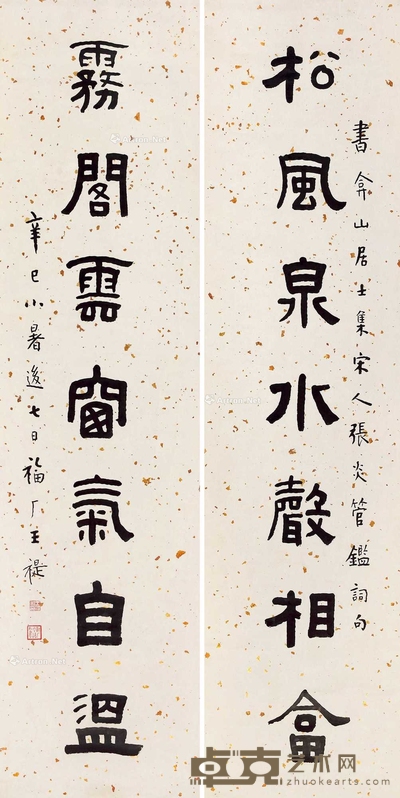 松風泉水聲相畣
書弇山居士集宋人張炎管鑑詞句
霧閣雲窗氣自溫
辛巳小暑後七日福厂王禔
卓克艺术网
zhuokearts.com